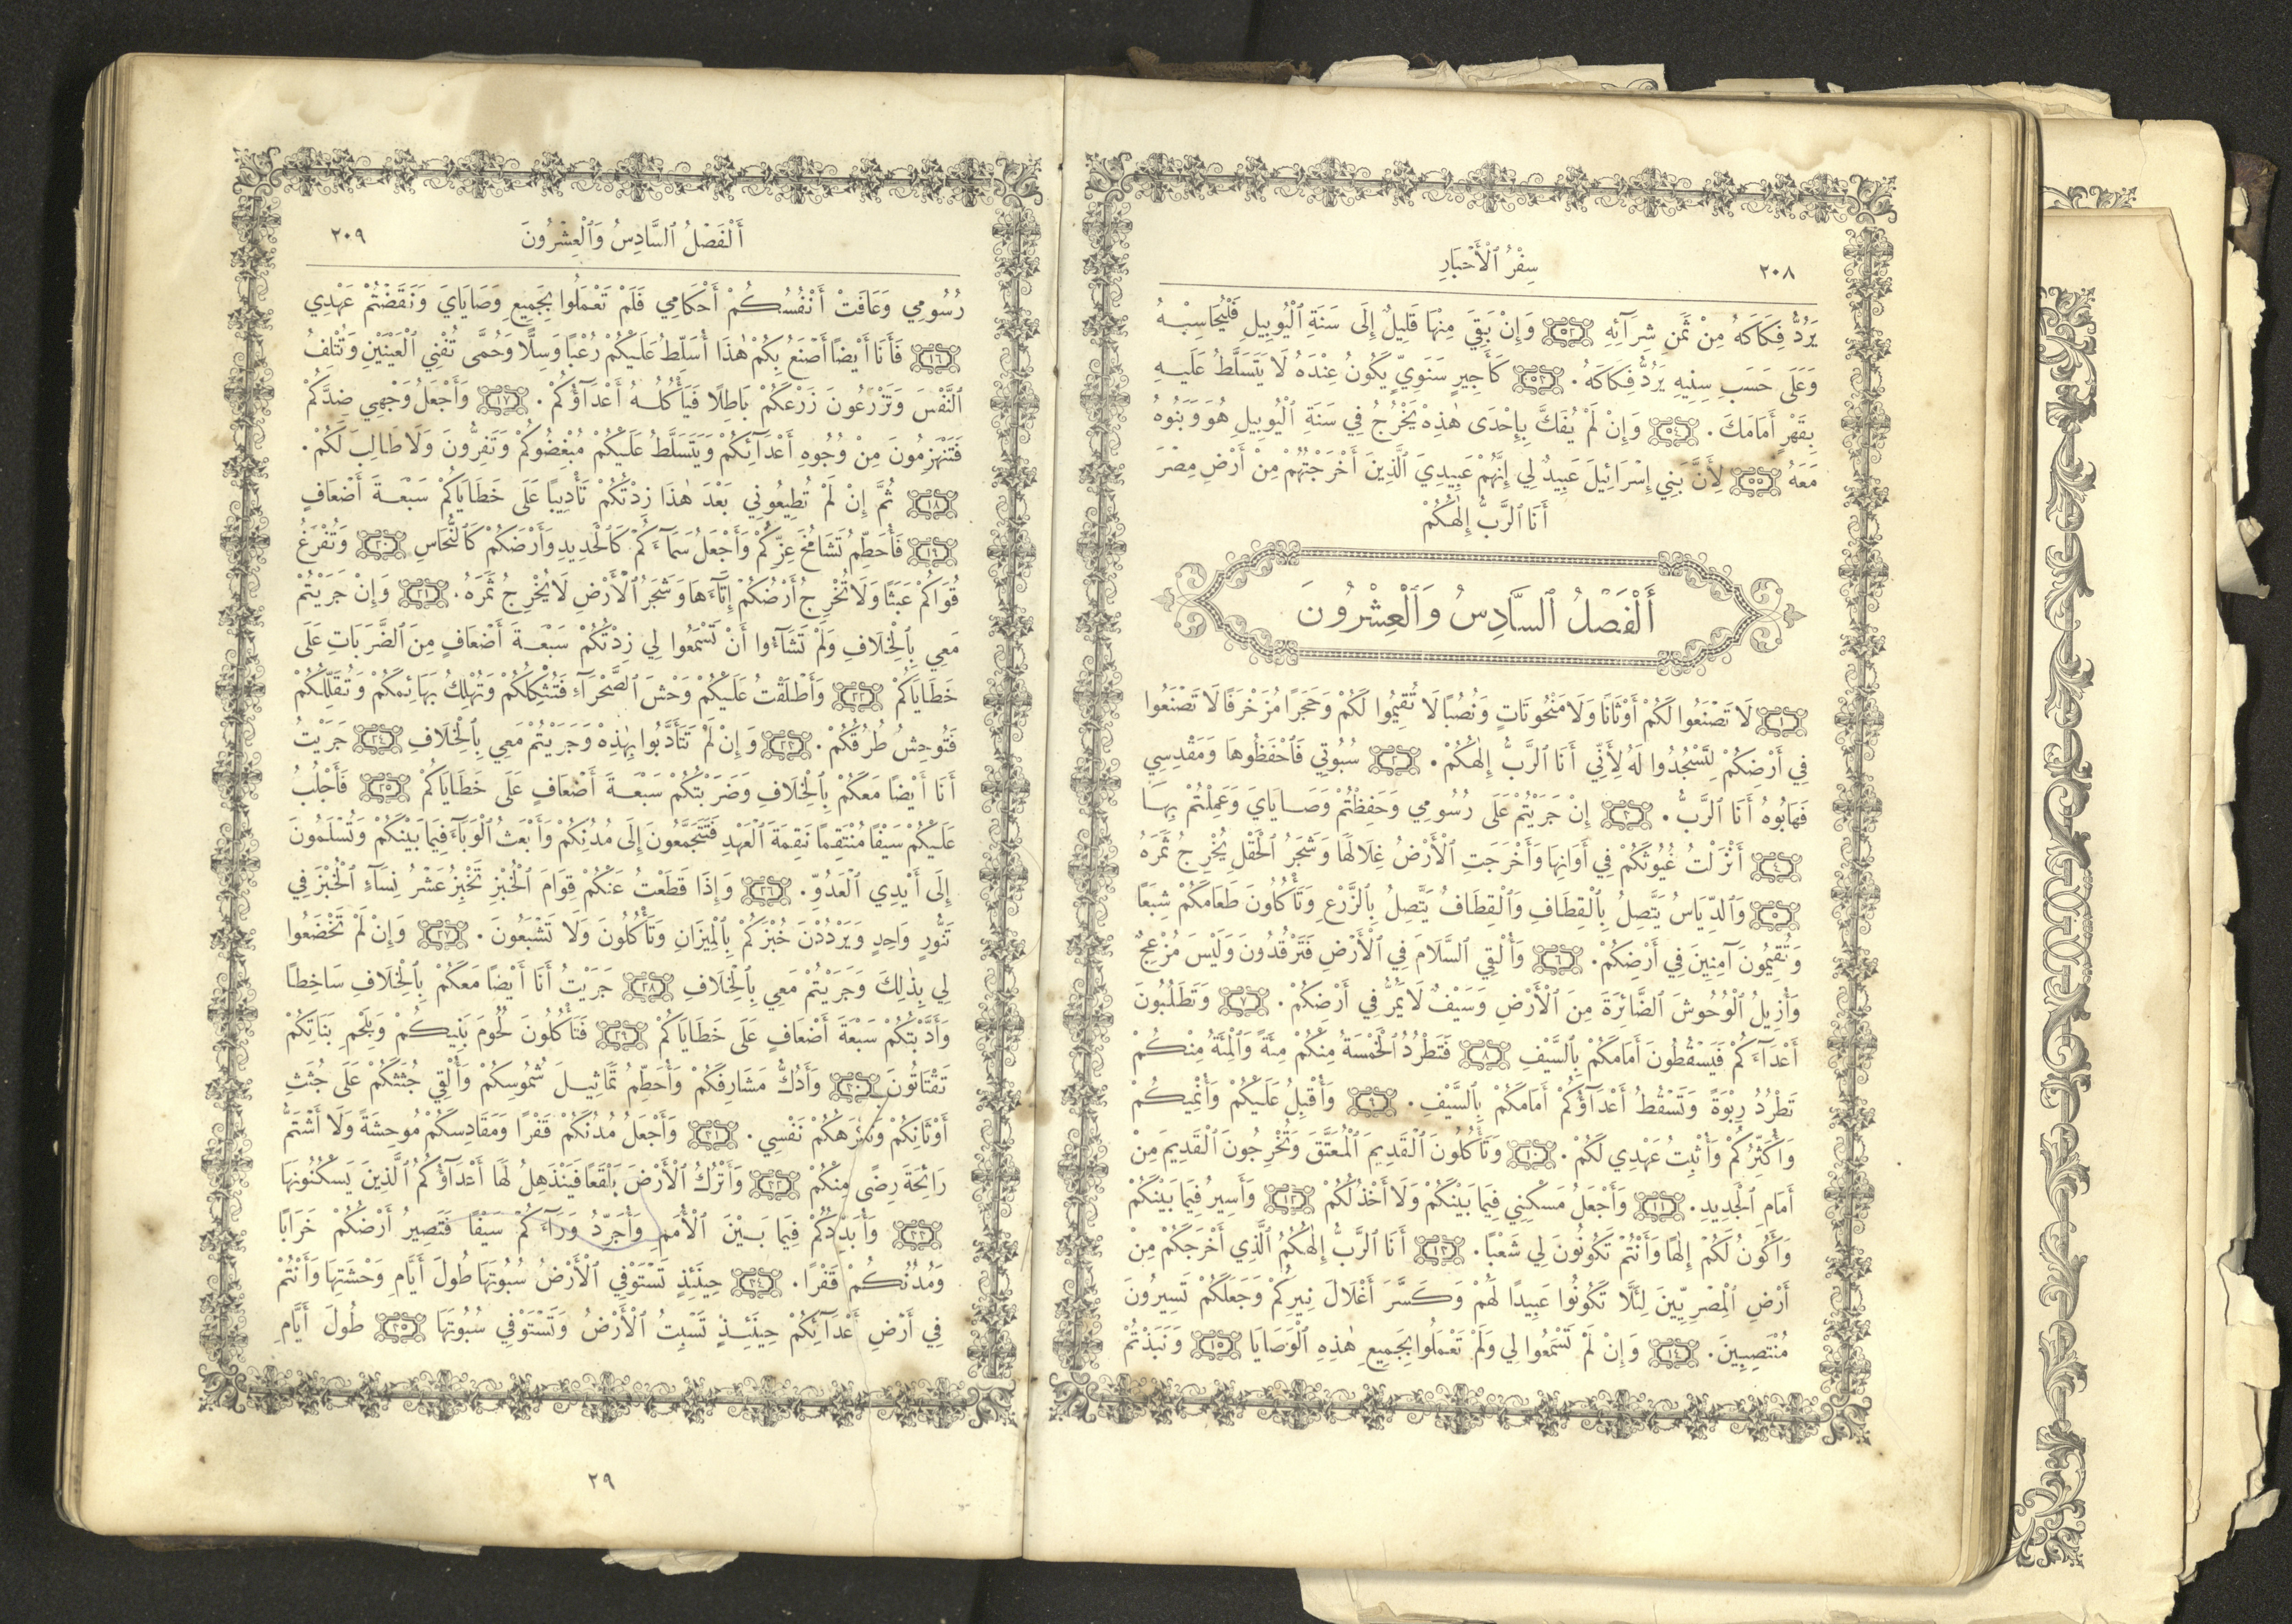 ٢٠٨
سِفْرُ ٱلْأَحْبَارِ
يَرُدُّ فِكَاكَهُ مِنْ ثَمَنِ شِرَآئِهِ ﴿٥٢﴾ وَإِنْ بَقِيَ مِنْهَا قَلِيلٌ إِلَى سَنَةِ ٱلْيُوبِيلِ فَلْيُحَاسِبْهُ
وَعَلَى حَسَبِ سِنِيهِ يَرُدُّ فِكَاكَهُ. ﴿٥٣﴾ كَأَجِيرٍ سَنَوِيٍّ يَكُونُ عِنْدَهُ لَا يَتَسَلَّطُ عَلَيْهِ
بِقَهْرٍ أَمَامَكَ. ﴿٥٤﴾ وَإِنْ لَمْ يُفَكَّ بِإِحْدَى هٰذِهْ يَخْرُجُ فِي سَنَةِ ٱلْيُوبِيلِ هُوَ وَبَنُوهُ
مَعَهُ ﴿٥٥﴾ لِأَنَّ بَنِي إِسْرَائِيلَ عَبِيدٌ لِي إِنَّهُمْ عَبِيدِيَ ٱلَّذِينَ أَخْرَجْتُهُمْ مِنْ أَرْضِ مِصْرَ
أَنَا ٱلرَّبُّ إِلٰهُكُمْ
أَلْفَصْلُ ٱلسَّادِسُ وَٱلْعِشْرُونَ
﴿١﴾ لَا تَصْنَعُوا لَكُمْ أَوْثَانًا وَلَا مَنْحُوتَاتٍ وَنُصُبًا لَا تُقِيمُوا لَكُمْ وَحَجَرًا مُزَخْرَفًا لَا تَصْنَعُوا
فِي أَرْضِكُمْ لِتَسْجُدُوا لَهُ لِأَنِّي أَنَا ٱلرَّبُّ إِلٰهُكُمْ. ﴿٢﴾ سُبُوتِي فَٱحْفَظُوهَا وَمَقْدِسِي
فَهَابُوهُ أَنَا ٱلرَّبُّ. ﴿٣﴾ إِنْ جَرَيْتُمْ عَلَى رُسُومِي وَحَفِظْتُمْ وَصَايَايَ وَعَمِلْتُمْ بِهَا
﴿٤﴾ أَنْزَلْتُ غُيُوثَكُمْ فِي أَوَانِهَا وَأَخْرَجَتِ ٱلْأَرْضُ غِلَالَهَا وَشَجَرُ ٱلْحَقْلِ يُخْرِجُ ثَمَرَهُ
﴿٥﴾ وَٱلدِّيَاسُ يَتَّصِلُ بِٱلْقِطَافِ وَٱلْقِطَافُ يَتَّصِلُ بِٱلزَّرْعِ وَتَأْكُلُونَ طَعَامَكُمْ شِبَعًا
وَتُقِيمُونَ آمِنِينَ فِي أَرْضِكُمْ. ﴿٦﴾ وَأُلْقِي ٱلسَّلَامَ فِي ٱلْأَرْضِ فَتَرْقُدُونَ وَلَيْسَ مُزْعِجٌ
وَأُزِيلُ ٱلْوُحُوشَ ٱلضَّائِرَةَ مِنَ ٱلْأَرْضِ وَسَيْفٌ لَا يَمُرُّ فِي أَرْضِكُمْ. ﴿٧﴾ وَتَطْلُبُونَ
أَعْدَآءَكُمْ فَيَسْقُطُونَ أَمَامَكُمْ بِٱلسَّيْفِ ﴿٨﴾ فَتَطْرُدُ ٱلْخَمْسَةُ مِنْكُمْ مِئَةً وَٱلْمِئَةُ مِنْكُمْ
تَطْرُدُ رِبْوَةً وَتَسْقُطُ أَعْدَآؤُكُمْ أَمَامَكُمْ بِٱلسَّيْفِ. ﴿٩﴾ وَأُقْبِلُ عَلَيْكُمْ وَأُنْمِيكُمْ
وَأُكَثِّرُكُمْ وَأُثْبِتُ عَهْدِي لَكُمْ. ﴿١٠﴾ وَتَأْكُلُونَ ٱلْقَدِيمَ ٱلْمُعَتَّقَ وَتُخْرِجُونَ ٱلْقَدِيمَ مِنْ
أَمَامِ ٱلْجَدِيدِ. ﴿١١﴾ وَأَجْعَلُ مَسْكِنِي فِيمَا بَيْنَكُمْ وَلَا أَخْذُلُكُمْ ﴿١٢﴾ وَأَسِيرُ فِيمَا بَيْنَكُمْ
وَأَكُونُ لَكُمْ إِلٰهًا وَأَنْتُمْ تَكُونُونَ لِي شَعْبًا. ﴿١٣﴾ أَنَا ٱلرَّبُّ إِلٰهُكُمُ ٱلَّذِي أَخْرَجَكُمْ مِنْ
أَرْضِ ٱلْمِصْرِيِّينَ لِئَلَّا تَكُونُوا عَبِيدًا لَهُمْ وَكَسَّرَ أَغْلَالَ نِيرِكُمْ وَجَعَلَكُمْ تَسِيرُونَ
مُنْتَصِبِينَ. ﴿١٤﴾ وَإِنْ لَمْ تَسْمَعُوا لِي وَلَمْ تَعْمَلُوا بِجَمِيعِ هٰذِهِ ٱلْوَصَايَا ﴿١٥﴾ وَنَبَذْتُمْ
أَلْفَصْلُ ٱلسَّادِسُ وَٱلْعِشْرُونَ
٢٠٩
رُسُومِي وَعَافَتْ أَنْفُسُكُمْ أَحْكَامِي فَلَمْ تَعْمَلُوا بِجَمِيعِ وَصَايَايَ وَنَقَضْتُمْ عَهْدِي
﴿١٦﴾ فَأَنَا أَيْضًا أَصْنَعُ بِكُمْ هٰذَا أُسَلِّطُ عَلَيْكُمْ رُعْبًا وَسِلًّا وَحُمَّى تُفْنِي ٱلْعَيْنَيْنِ وَتُتْلِفُ
ٱلنَّفْسَ وَتَزْرَعُونَ زَرْعَكُمْ بَاطِلًا فَيَأْكُلُهُ أَعْدَآؤُكُمْ. ﴿١٧﴾ وَأَجْعَلُ وَجْهِي ضِدَّكُمْ
فَتَنْهَزِمُونَ مِنْ وُجُوهِ أَعْدَآئِكُمْ وَيَتَسَلَّطُ عَلَيْكُمْ مُبْغِضُوكُمْ وَتَفِرُّونَ وَلَا طَالِبَ لَكُمْ.
﴿١٨﴾ ثُمَّ إِنْ لَمْ تُطِيعُونِي بَعْدَ هٰذَا زِدْتُكُمْ تَأْدِيبًا عَلَى خَطَايَاكُمْ سَبْعَةَ أَضْعَافٍ
﴿١٩﴾ فَأُحَطِّمُ تَشَامُخَ عِزِّكُمْ وَأَجْعَلُ سَمَآءَكُمْ كَٱلْحَدِيدِ وَأَرْضَكُمْ كَٱلنُّحَاسِ ﴿٢٠﴾ وَتُفْرَغُ
قُوَاكُمْ عَبَثًا وَلَا تُخْرِجُ أَرْضُكُمْ إِتَآءَهَا وَشَجَرُ ٱلْأَرْضِ لَا يُخْرِجُ ثَمَرَهُ. ﴿٢١﴾ وَإِنْ جَرَيْتُمْ
مَعِي بِٱلْخِلَافِ وَلَمْ تَشَآءُوا أَنْ تَسْمَعُوا لِي زِدْتُكُمْ سَبْعَةَ أَضْعَافٍ مِنَ ٱلضَّرَبَاتِ عَلَى
خَطَايَاكُمْ ﴿٢٢﴾ وَأَطْلَقْتُ عَلَيْكُمْ وَحْشَ ٱلصَّحْرَآءِ فَتُثْكِلُكُمْ وَتُهْلِكُ بَهَائِمَكُمْ وَتُقَلِّلُكُمْ
فَتُوحِشُ طُرُقُكُمْ. ﴿٢٣﴾ وَإِنْ لَمْ تَتَأَدَّبُوا بِهٰذِهْ وَجَرَيْتُمْ مَعِي بِٱلْخِلَافِ ﴿٢٤﴾ جَرَيْتُ
أَنَا أَيْضًا مَعَكُمْ بِٱلْخِلَافِ وَضَرَبْتُكُمْ سَبْعَةَ أَضْعَافٍ عَلَى خَطَايَاكُمْ ﴿٢٥﴾ فَأَجْلُبُ
عَلَيْكُمْ سَيْفًا مُنْتَقِمًا نَقِمَةَ ٱلْعَهْدِ فَتَتَجَمَّعُونَ إِلَى مُدُنِكُمْ وَأَبْعَثُ ٱلْوَبَآءَ فِيمَا بَيْنَكُمْ وَتُسْلَمُونَ
إِلَى أَيْدِي ٱلْعَدُوِّ. ﴿٢٦﴾ وَإِذَا قَطَعْتُ عَنْكُمْ قِوَامَ ٱلْخُبْزِ تَخْبِزُ عَشْرُ نِسَآءٍ ٱلْخُبْزَ فِي
تَنُّورٍ وَاحِدٍ وَيَرْدُدْنَ خُبْزَكُمْ بِٱلْمِيزَانِ وَتَأْكُلُونَ وَلَا تَشْبَعُونَ. ﴿٢٧﴾ وَإِنْ لَمْ تَخْضَعُوا
لِي بِذٰلِكَ وَجَرَيْتُمْ مَعِي بِٱلْخِلَافِ ﴿٢٨﴾ جَرَيْتُ أَنَا أَيْضًا مَعَكُمْ بِٱلْخِلَافِ سَاخِطًا
وَأَدَّبْتُكُمْ سَبْعَةَ أَضْعَافٍ عَلَى خَطَايَاكُمْ ﴿٢٩﴾ فَتَأْكُلُونَ لُحُومَ بَنِيكُمْ وَبِلَحْمِ بَنَاتِكُمْ
تَقْتَاتُونَ ﴿٣٠﴾ وَأَدُكُّ مَشَارِفَكُمْ وَأُحَطِّمُ تَمَاثِيلَ شُمُوسِكُمْ وَأُلْقِي جُثَثَكُمْ عَلَى جُثَثِ
أَوْثَانِكُمْ وَتَكْرَهُكُمْ نَفْسِي. ﴿٣١﴾ وَأَجْعَلُ مُدُنَكُمْ قَفْرًا وَمَقَادِسَكُمْ مُوحِشَةً وَلَا أَشْتَمُّ
رَائِحَةَ رِضًى مِنْكُمْ ﴿٣٢﴾ وَأَتْرُكُ ٱلْأَرْضَ بَلْقَعًا فَيَنْذَهِلُ لَهَا أَعْدَآؤُكُمُ ٱلَّذِينَ يَسْكُنُونَهَا
﴿٣٣﴾ وَأُبَدِّدُكُمْ فِيمَا بَيْنَ ٱلْأُمَمِ وَأُجَرِّدُ وَرَآءَكُمْ سَيْفًا فَتَصِيرُ أَرْضُكُمْ خَرَابًا
وَمُدُنُكُمْ قَفْرًا. ﴿٣٤﴾ حِينَئِذٍ تَسْتَوْفِي ٱلْأَرْضُ سُبُوتَهَا طُولَ أَيَّامِ وَحْشَتِهَا وَأَنْتُمْ
فِي أَرْضِ أَعْدَآئِكُمْ حِينَئِذٍ تَسْبِتُ ٱلْأَرْضُ وَتَسْتَوْفِي سُبُوتَهَا ﴿٣٥﴾ طُولَ أَيَّامِ
٢٩